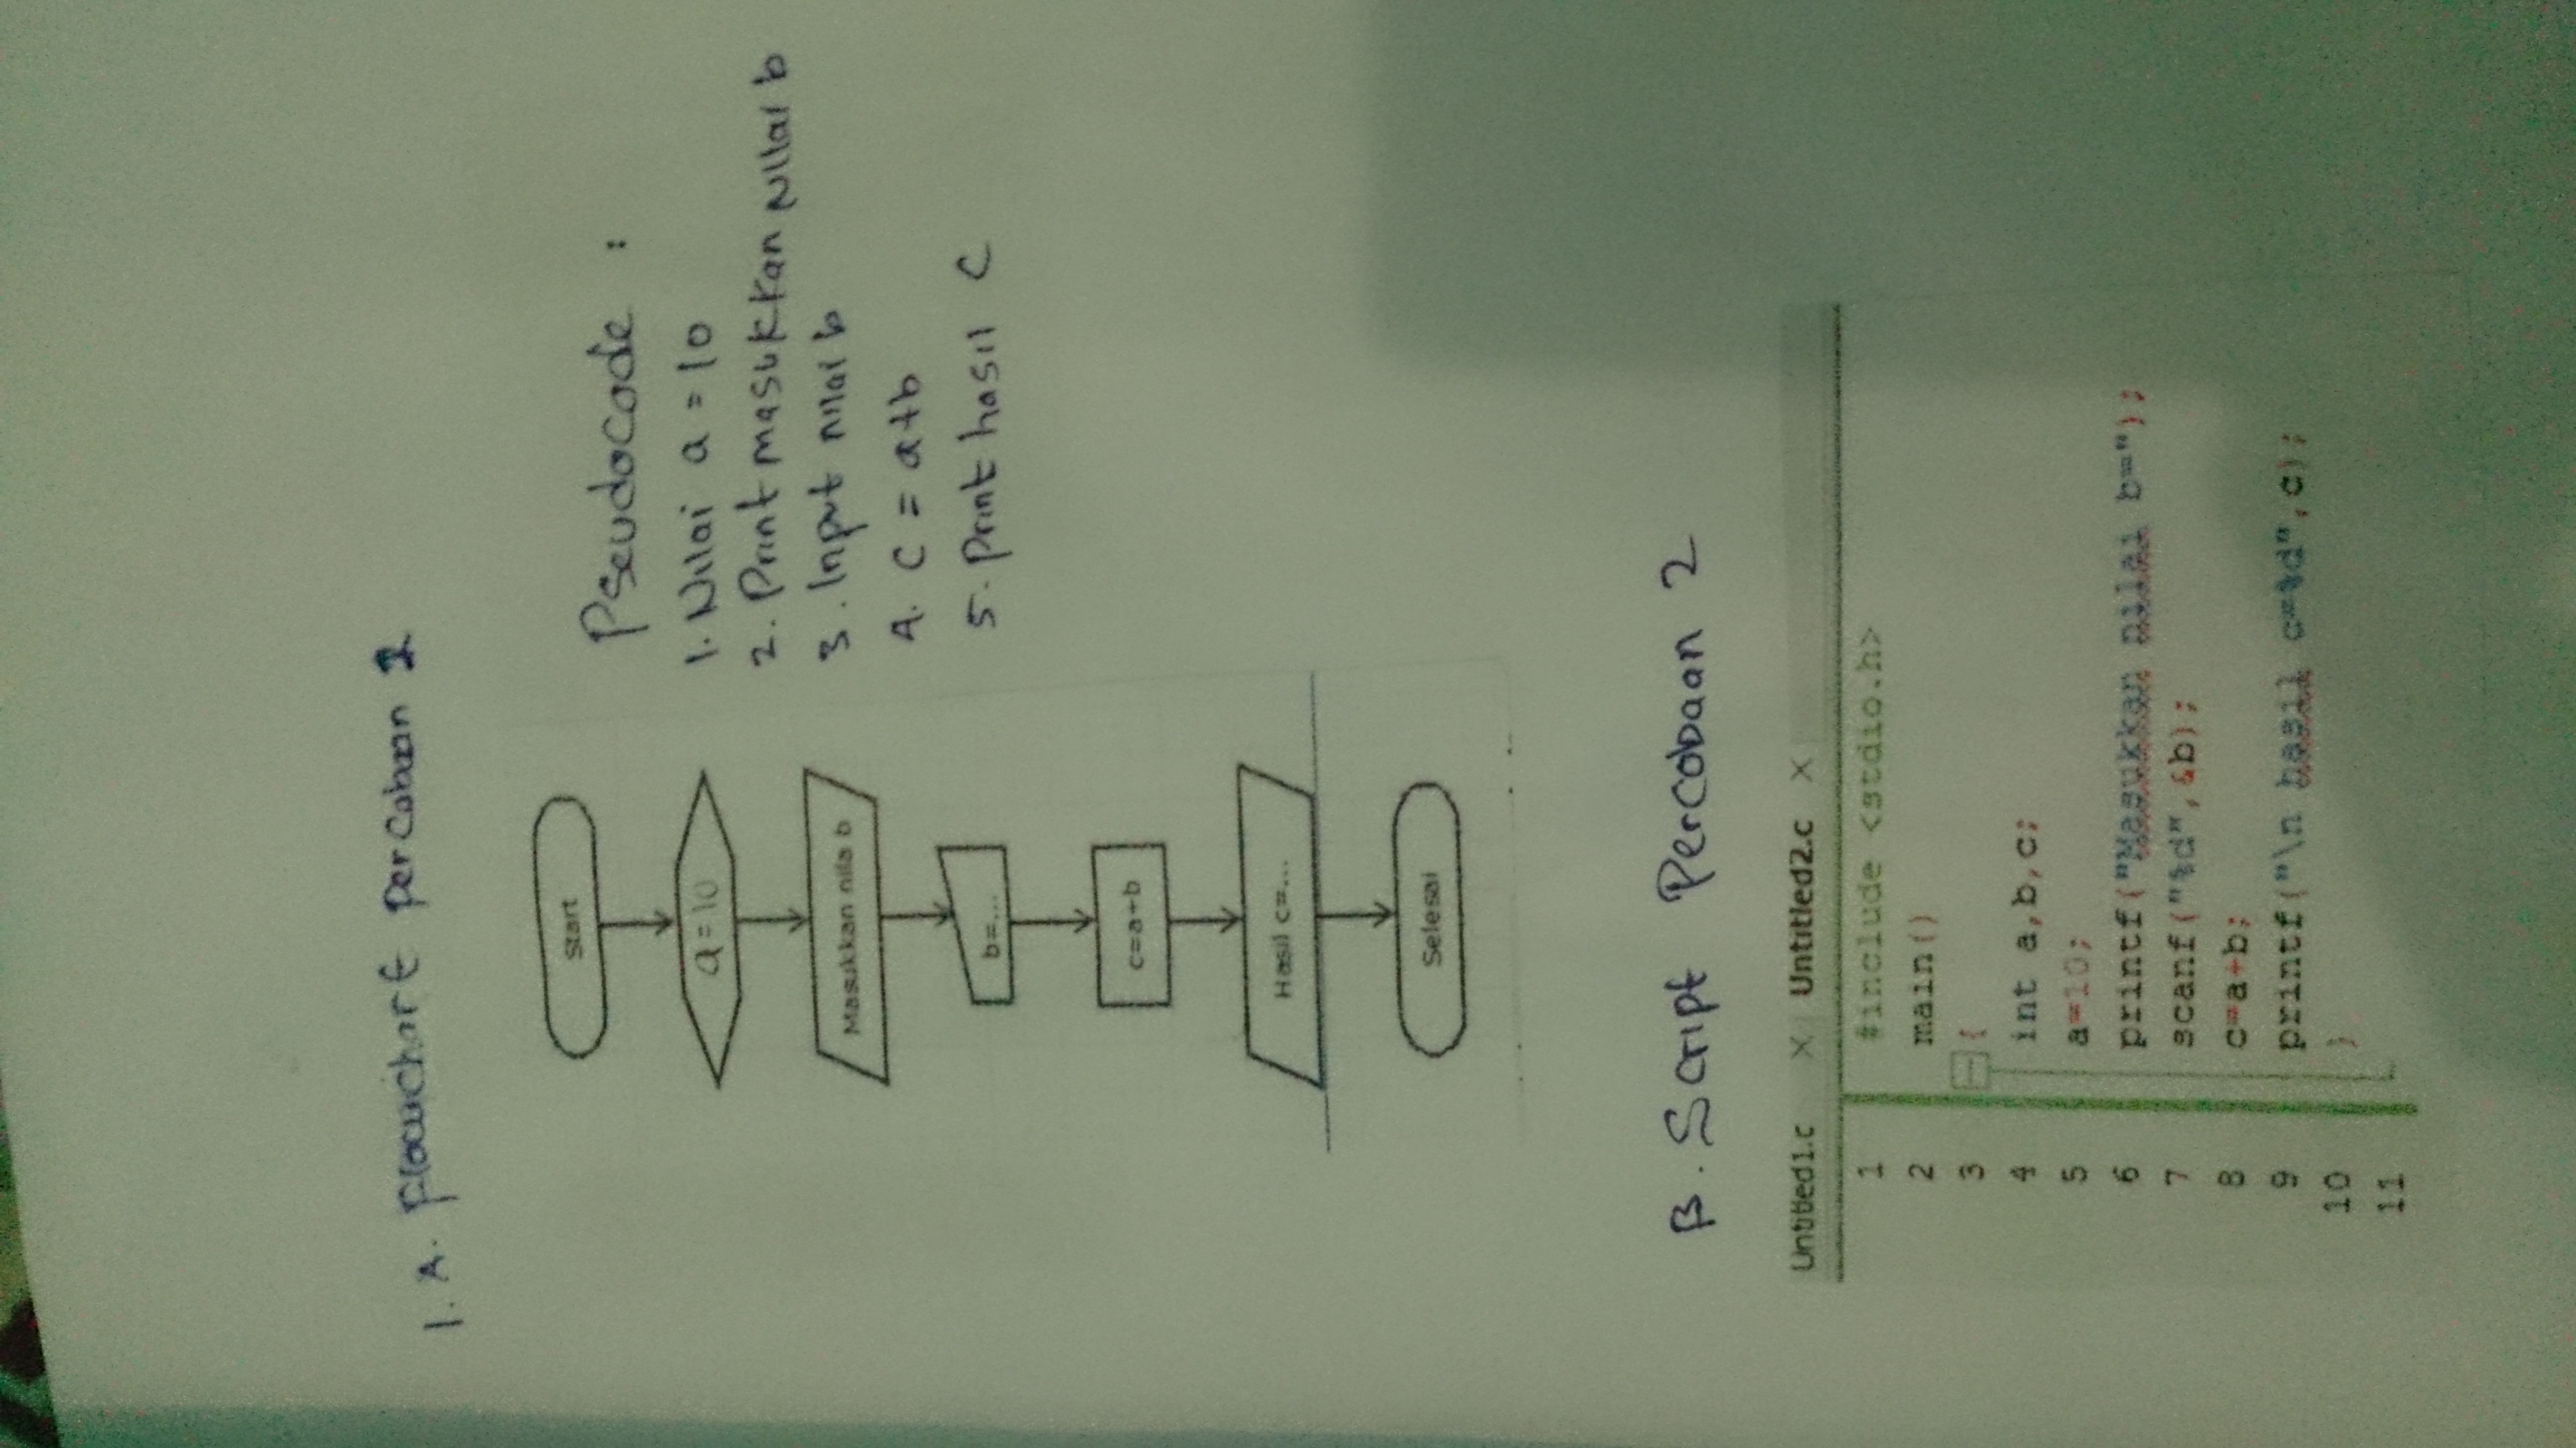 1. A. Flowchart Percobaan 2
Start
a=10
Masukkan nila b
b=...
c=a+b
Hasil c=...
Selesai
Pseudocode :
1. Nilai a = 10
2. Print masukkan Nilai b
3. Input nilai b
4. C = a+b
5. Print hasil C
B. Script Percobaan 2
Untitled1.c X Untitled2.c X
1 #include <stdio.h>
2 main()
3 {
4 int a,b,c;
5 a=10;
6 printf("Masukkan nilai b=");
7 scanf("%d",&b);
8 c=a+b;
9 printf("\n hasil c=%d",c);
10 }
11